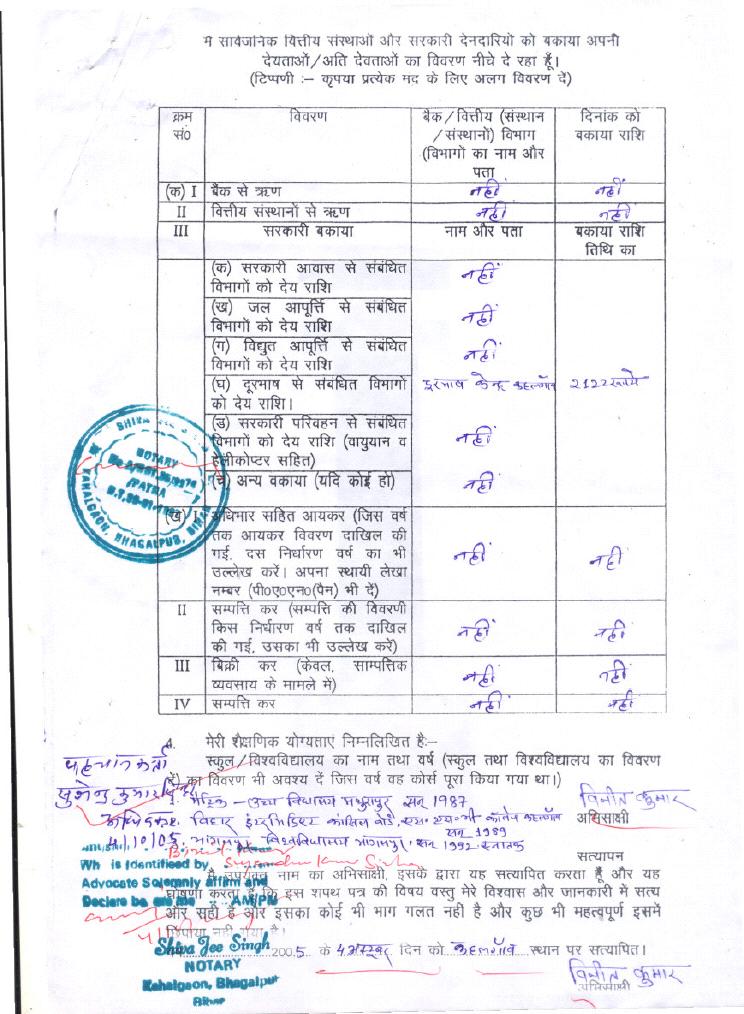 मै सार्वजनिक वित्तीय संस्थाओं और सरकारी देनदारियो को बकाया अपनी
देयताओं/अति देवताओं का विवरण नीचे दे रहा हूँ।
(टिप्पणी :– कृपया प्रत्येक मद के लिए अलग विवरण दें)
क्रम सं0 विवरण बैक/वित्तीय (संस्थान /संस्थानों) विभाग (विभागों का नाम और पता दिनांक को बकाया राशि
(क) I बैंक से ऋण नहीं नहीं
II वित्तीय संस्थानों से ऋण नहीं नहीं
III सरकारी बकाया नाम और पता बकाया राशि तिथि का
(क) सरकारी आवास से संबंधित
विभागों को देय राशि नहीं
(ख) जल आपूर्त्ति से संबंधित
विभागों को देय राशि नहीं
(ग) विद्युत आपूर्त्ति से संबंधित
विभागों को देय राशि नहीं
(घ) दूरभाष से संबंधित विभागों दूरभाष केन्द्र कहलगाँव 2122 रूपये
को देय राशि।
(ड) सरकारी परिवहन से संबंधित
विभागों को देय राशि (वायुयान व नहीं
हेलीकोप्टर सहित)
(च) अन्य वकाया (यदि कोई हो) नहीं
SHIVA
NOTARY
PATNA
KAHALGAON, BHAGALPUR, BIHAR
(ख) I अधिमार सहित आयकर (जिस वर्ष
तक आयकर विवरण दाखिल की
गई, दस निर्धारण वर्ष का भी नहीं नहीं
उल्लेख करें। अपना स्थायी लेखा
नम्बर (पी0ए0एन0(पैन) भी दें)
II सम्पत्ति कर (सम्पत्ति की विवरणी
किस निर्धारण वर्ष तक दाखिल नहीं नहीं
की गई, उसका भी उल्लेख करें)
III बिक्री कर (केवल, साम्पत्तिक नहीं नहीं
व्यवसाय के मामले में)
IV सम्पत्ति कर नहीं नहीं
4. मेरी शैक्षणिक योग्यताएं निम्नलिखित है:–
स्कूल/विश्वविद्यालय का नाम तथा वर्ष (स्कूल तथा विश्वविद्यालय का विवरण
दें) का विवरण भी अवश्य दें जिस वर्ष वह कोर्स पूरा किया गया था।)
पहचान कर्ता
मैट्रिक – उच्च विद्यालय मथुरापुर सन् 1987
विनीत कुमार
अभिसाक्षी
बिहार इंटरमिडिएट कौंसिल बोर्ड, एस. एस. भी कॉलेज कहलगाँव
सन् 1989
4/10/05
भागलपुर विश्वविद्यालय भागलपुर, सन् 1992 स्नातक
सत्यापन
Wh is Identifieed by
Advocate Solemnly affirm and
Declare be ere me AM/PM
मै, उपरोक्त नाम का अभिसाक्षी, इसके द्वारा यह सत्यापित करता हूँ और यह
घोषणा करता हूँ कि इस शपथ पत्र की विषय वस्तु मेरे विश्वास और जानकारी में सत्य
और सही है और इसका कोई भी भाग गलत नही है और कुछ भी महत्वपूर्ण इसमें
छिपाया नही गया है।
2005 के 4 अक्टूबर दिन को कहलगाँव स्थान पर सत्यापित।
Shiva Jee Singh
NOTARY
Kahalgaon, Bhagalpur
Bihar
विनीत कुमार
अभिसाक्षी